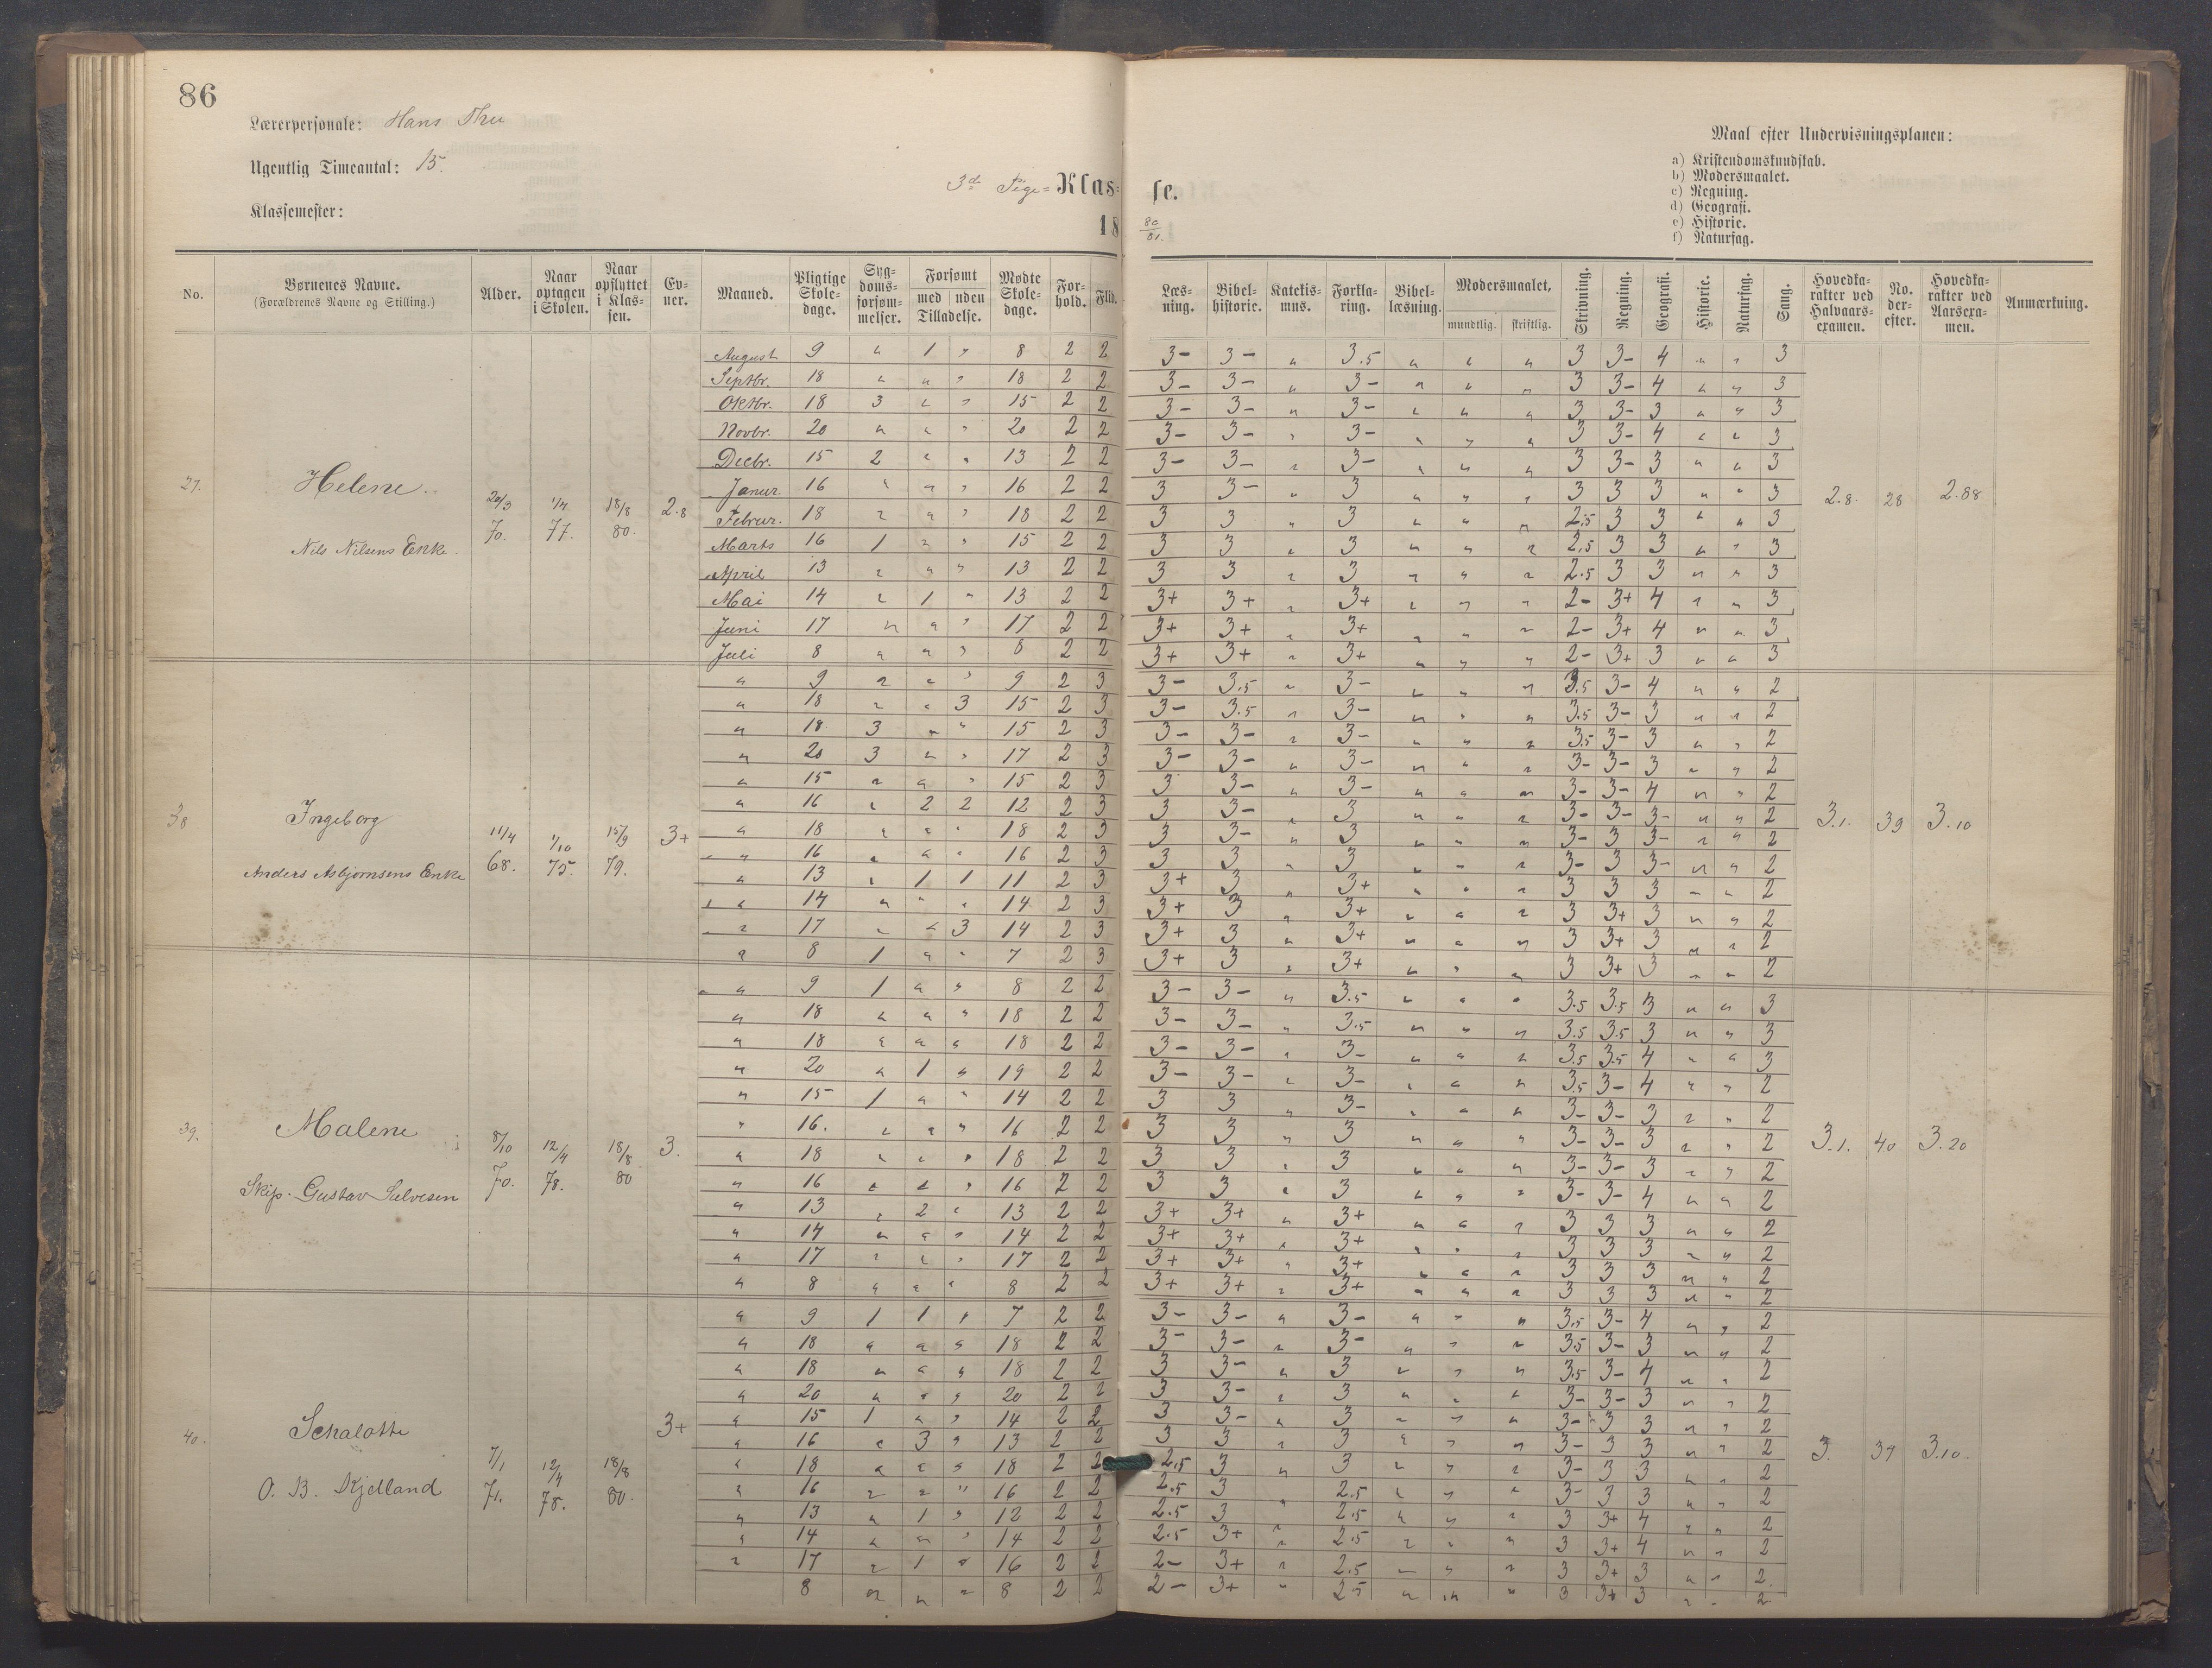 86
Lærerpersonale: Hans Thu
Ugentlig Timeantal: 15.
Klassemester:
3d Pige= Klas=
18
se.
80/81.
Maal efter Undervisningsplanen:
a) Kristendomskundskab.
b) Modersmaalet.
c) Regning.
d) Geografi.
e) Historie.
f) Naturfag.
No. Børnenes Navne. (Forældrenes Navne og Stilling.) Alder. Naar optagen i Skolen. Naar opflyttet i Klassen. Evner. Maaned. Pligtige Skoledage. Sygdomsforsømmelser. Forsømt med uden Tilladelse. Mødte Skoledage. Forhold. Flid.
Læsning. Bibelhistorie. Katekismus. Forklaring. Bibellæsning. Modersmaalet, mundtlig. skriftlig. Skrivning. Regning. Geografi. Historie. Naturfag. Sang. Hovedkarakter ved Halvaarsexamen. No. derefter. Hovedkarakter ved Aarsexamen. Anmærkning.
August 9 " 1 " 8 2 2 3- 3- " 3.5 " " " 3 3- 4 " " 3
Septbr. 18 " " " 18 2 2 3- 3- " 3- " " " 3 3- 4 " " 3
Oktbr. 18 3 " " 15 2 2 3- 3- " 3- " " " 3 3- 3 " " 3
Novbr. 20 " " " 20 2 2 3- 3- " 3- " " " 3 3- 4 " " 3
Decbr. 15 2 " " 13 2 2 3- 3- " 3- " " " 3 3- 3 " " 3
27. Helene. 20/3 70. 1/4 77. 18/8 80. 2.8
Nils Nilsens Enke.
Janur. 16 " " " 16 2 2 3 3- " 3 " " " 3 3 3 " " 3 2.8. 28 2.88
Februr. 18 " " " 18 2 2 3 3 " 3 " " " 2.5 3 3 " " 3
Marts 16 1 " " 15 2 2 3 3 " 3 " " " 2.5 3 3 " " 3
April 13 " " " 13 2 2 3 3 " 3 " " " 2.5 3 3 " " 3
Mai 14 " 1 " 13 2 2 3+ 3+ " 3+ " " " 2- 3+ 4 " " 3
Juni 17 " " " 17 2 2 3+ 3+ " 3+ " " " 2- 3+ 4 " " 3
Juli 8 " " " 8 2 2 3+ 3+ " 3+ " " " 2- 3+ 3 " " 3
" 9 " " " 9 2 3 3- 3.5 " 3- " " " 3.5 3- 4 " " 2
" 18 " " 3 15 2 3 3- 3.5 " 3- " " " 3.5 3- 3 " " 2
" 18 3 " " 15 2 3 3- 3- " 3- " " " 3.5 3- 3 " " 2
" 20 3 " " 17 2 3 3- 3- " 3- " " " 3- 3- 3 " " 2
" 15 " " " 15 2 3 3 3- " 3- " " " 3- 3- 4 " " 2
38 Ingeborg 11/4 68. 1/10 75. 15/9 79. 3+
Anders Asbjørnsens Enke
" 16 " 2 2 12 2 3 3 3- " 3 " " " 3- 3- 3- " " 2 3.1. 39 3.10
" 18 " " " 18 2 3 3 3- " 3 " " " 3- 3 3- " " 2
" 16 " " " 16 2 3 3 3 " 3 " " " 3- 3 3- " " 2
" 13 " 1 1 11 2 3 3+ 3 " 3+ " " " 3 3 3 " " 2
" 14 " " " 14 2 3 3+ 3 " 3+ " " " 3 3+ 3 " " 2
" 17 " " 3 14 2 3 3+ 3 " 3+ " " " 3 3+ 3 " " 2
" 8 1 " " 7 2 3 3+ 3 " 3+ " " " 3 3+ 3 " " 2
" 9 1 " " 8 2 2 3- 3- " 3.5 " " " 3.5 3.5 3 " " 3
" 18 " " " 18 2 2 3- 3- " 3.5 " " " 3.5 3.5 3 " " 3
" 18 " " " 18 2 2 3- 3- " 3- " " " 3.5 3.5 4 " " 3
" 20 " 1 " 19 2 2 3- 3- " 3- " " " 3.5 3- 4 " " 2
" 15 1 " " 14 2 2 3 3 " 3- " " " 3- 3- 3 " " 2
39. Malene 8/10 70. 12/4 78. 18/8 80 3.
Skip. Gustav Selvesen
" 16. " " " 16 2 2 3 3 " 3 " " " 3- 3- 3 " " 2 3.1. 40 3.20
" 18 " " " 18 2 2 3 3 " 3 " " " 3- 3- 3 " " 2
" 16 " " " 16 2 2 3 3 " 3 " " " 3- 3- 4 " " 2
" 13 " 2 " 13 2 2 3+ 3+ " 3+ " " " 3 3 3 " " 2
" 14 " " " 14 2 2 3+ 3+ " 3+ " " " 3 3 3 " " 2
" 17 " " " 17 2 2 3+ 3+ " 3+ " " " 3 3 3 " " 2
" 8 " " " 8 2 2 3+ 3+ " 3+ " " " 3 3 3 " " 2
" 9 1 1 " 7 2 2 3- 3- " 3- " " " 3.5 3- 4 " " 2
" 18 " " " 18 2 2 3- 3- " 3- " " " 3.5 3- 3 " " 2
" 18 " " " 18 2 2 3 3- " 3 " " " 3.5 3- 4 " " 2
" 20 " " " 20 2 2 3 3- " 3 " " " 3- 3- 3 " " 2
" 15 1 " " 14 2 2 3 3- " 3 " " " 3- 3 3 " " 2
40. Schalotte 7/1 71. 12/4 78. 18/8 80. 3+
O. B. Kjelland
" 16 " 3 " 13 2 2 3 3 " 3 " " " 3- 3 3 " " 2 3. 37 3.10.
" 18 " " " 18 2 2 2.5 3 " 3 " " " 3- 3 3 " " 2
" 16 " " " 16 2 2 2.5 3 " 2.5 " " " 3- 3 3 " " 2
" 13 " 1 " 12 2 2 2.5 3 " 2.5 " " " 3 3+ 4 " " 2
" 14 " " " 14 2 2 2.5 3+ " 2.5 " " " 3 3+ 4 " " 2
" 17 " 1 " 16 2 2 2- 3+ " 2.5 " " " 3 3+ 3 " " 2
8 " " " 8 2 2 2- 3+ " 2.5 " " " 3 3+ 3 " " 2